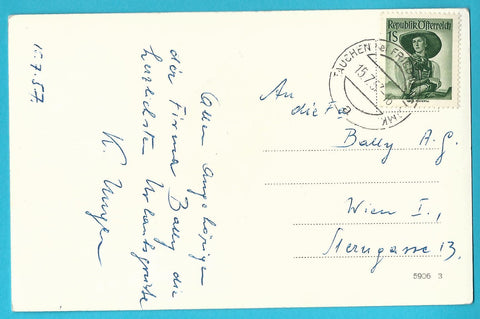 15.7.57
Allen Angehörigen
der Firma Bally die
herzlichsten Urlaubsgrüße
K. Unger
Republik Österreich
1S
TAUCHEN
15.7.57
STMK
An
die Fa
Bally A.G.
Wien I.,
Sterngasse 13.
5906 3